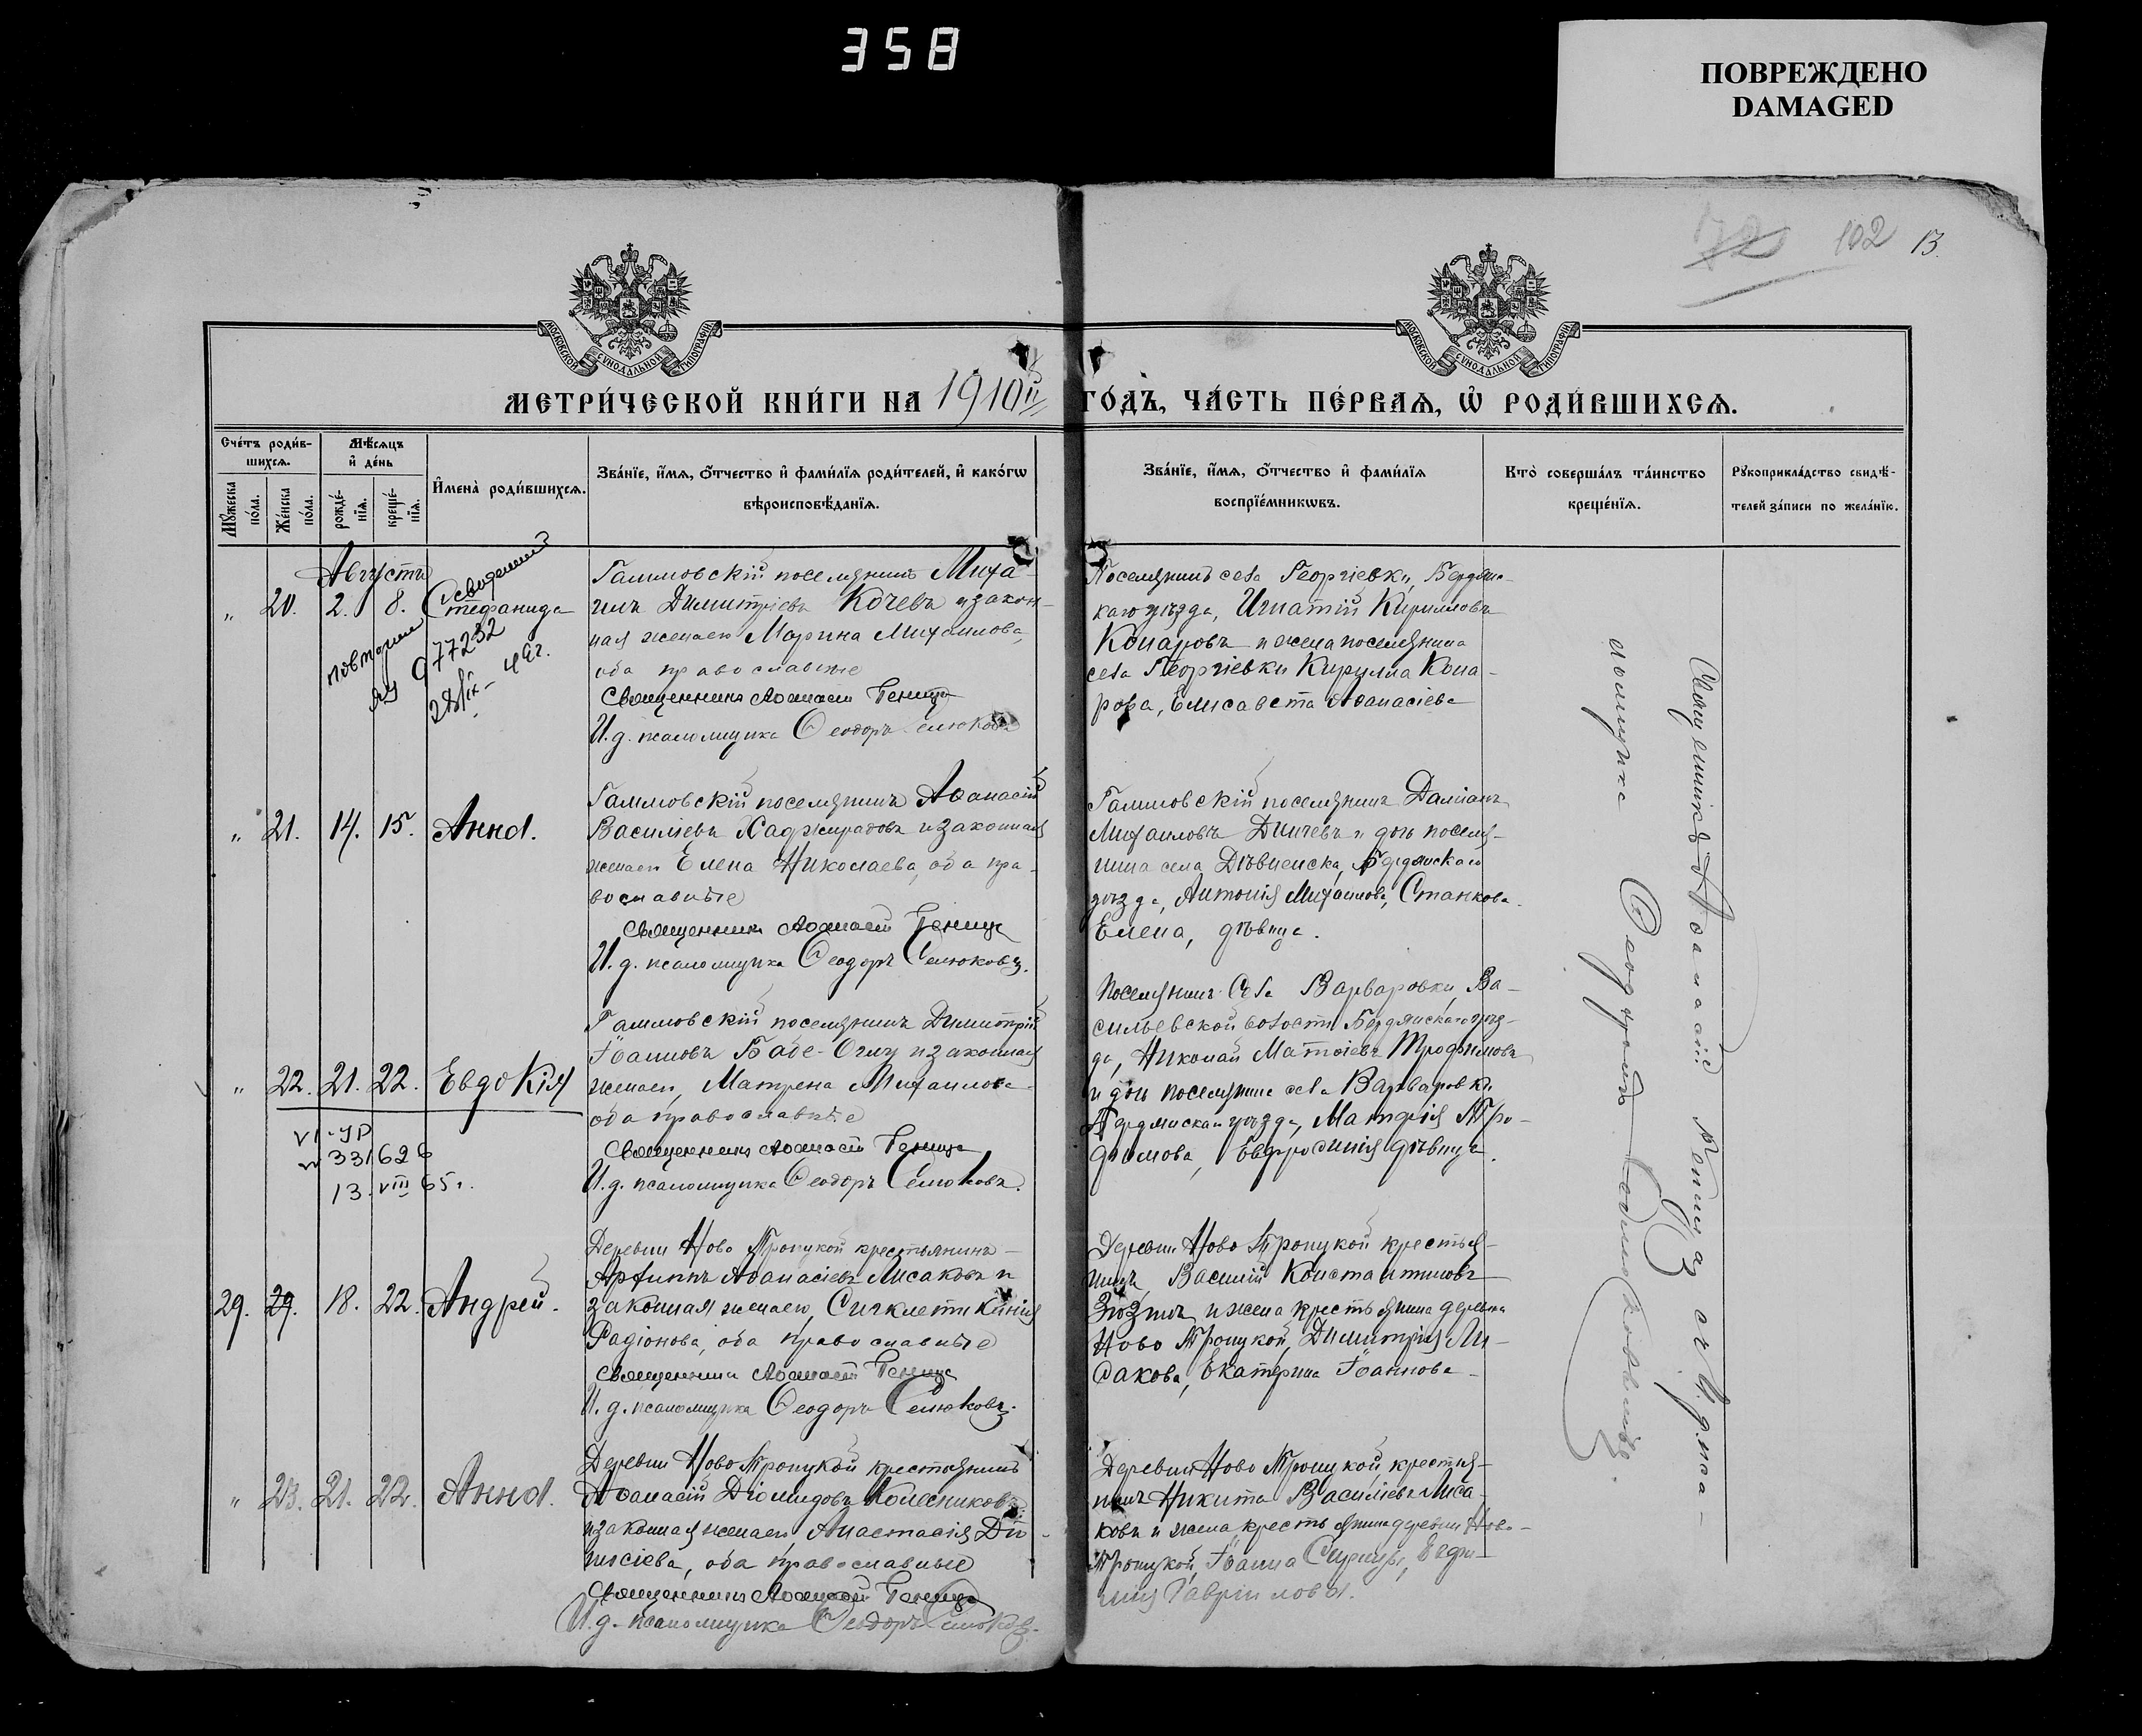 358
ПОВРЕЖДЕНО
DAMAGED
102 13.
МОСКОВСКОЙ СУНОДАЛЬНОЙ ТИПОГРАФІИ
МОСКОВСКОЙ СУНОДАЛЬНОЙ ТИПОГРАФІИ
МЕТРИ́ЧЕСКОЙ КНИ́ГИ НА 1910й ГО́ДЪ, ЧА́СТЬ ПЕ́РВАЯ, Ѡ РОДИ́ВШИХСЯ.
Сче́тъ роди́вшихся.
Му́жеска по́ла.
Же́нска по́ла.
Мѣ́сяцъ и҆ де́нь
рожде́нїя.
креще́нїя.
И҆мена̀ роди́вшихся.
Зва́нїе, и҆́мя, о҆́тчество и҆ фами́лїя роди́телей, и҆ како́гѡ вѣроисповѣ́данїя.
Зва́нїе, и҆́мя, о҆́тчество и҆ фами́лїя воспрїе́мникѡвъ.
Кто̀ соверша́лъ та́инство креще́нїя.
Рꙋкоприкла́дство свидѣ́телей за́писи по жела́нїю.
Августъ
" 20. 2. 8. Стефанида
повторно
977232
Михаилъ Димитріевъ Кочевъ и законная жена его Марина Михаилова,
оба православные
Священникъ Аѳанасій
И. д. псаломщика Ѳеодоръ Селюковъ
Поселянинъ села Георгіевки, Бердянскаго уѣзда, Игнатій Кирилловъ
Конаровъ и жена поселянина
села Георгіевки Кирилла Конарова, Елисавета Аѳанасіева
" 21. 14. 15. Анна.
поселянинъ Аѳанасій
Василіевъ Хаджирадовъ и законная
жена его Елена Николаева, оба православные
Священникъ Аѳанасій
И. д. псаломщика Ѳеодоръ Селюковъ.
поселянинъ Даміанъ
Михаиловъ Динчевъ и дочь поселянина села Дѣвненска, Бердянскаго
уѣзда, Антонія Михаилова, Станкова
Елена, дѣвица.
" 22. 21. 22. Евдокія
VI-УР
№ 331626
13.VIII 65г.
поселянинъ Димитрій
Іоанновъ Баде-Оглу и законная
жена его, Матрена Михаилова
оба православные
Священникъ Аѳанасій
И. д. псаломщика Ѳеодоръ Селюковъ.
Поселянинъ села Варваровки, Васильевской волости Бердянскаго уѣзда, Николай Матѳіевъ Трофимовъ
и дочь поселянина села Варваровки
Бердянскаго уѣзда, Матѳія Трофимова, Евфросинія дѣвица.
29. 29. 18. 22. Андрей.
Деревни Ново Троицкой крестьянинъ
Архиппъ Аѳанасіевъ Лисаковъ и
законная жена его, Сигклитикинія
Радіонова, оба православные
Священникъ Аѳанасій
И. д. псаломщика Ѳеодоръ Селюковъ.
Деревни Ново Троицкой крестьянинъ, Василій Константиновъ
и жена крестьянина деревни
Ново Троицкой, Димитрія Лисакова, Екатерина Іоаннова
" 23. 21. 22. Анна.
Деревни Ново Троицкой крестьянинъ
Аѳанасій Діомидовъ Колесниковъ
и законная жена его Анастасія Діонисіева, оба православные
Священникъ Аѳанасій
И. д. псаломщика Ѳеодоръ Селюковъ.
Деревни Ново Троицкой, крестьянинъ Никита Василіевъ Лисаковъ и жена крестьянина деревни Ново-
Троицкой, Іоанна Евфимія Гавріилова.
Священникъ Аѳанасій съ И. д. псаломщика Ѳеодоромъ Селюковымъ.